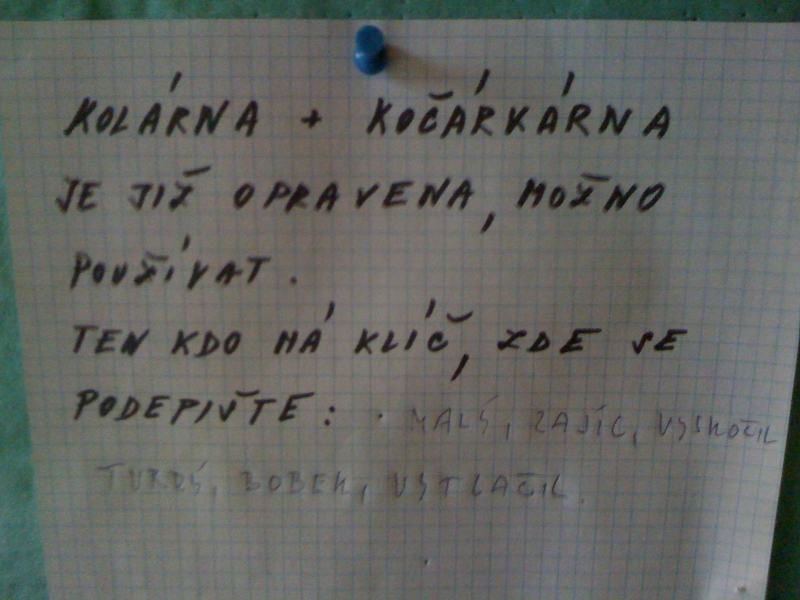 KOLÁRNA + KOČÁRKÁRNA
JE JIŽ OPRAVENA, MOŽNO
POUŽÍVAT.
TEN KDO MÁ KLÍČ, ZDE SE
PODEPIŠTE: MALÝ, ZAJÍC, VYSKOČIL
TVRDÝ, BOBEK, VYTLAČIL.